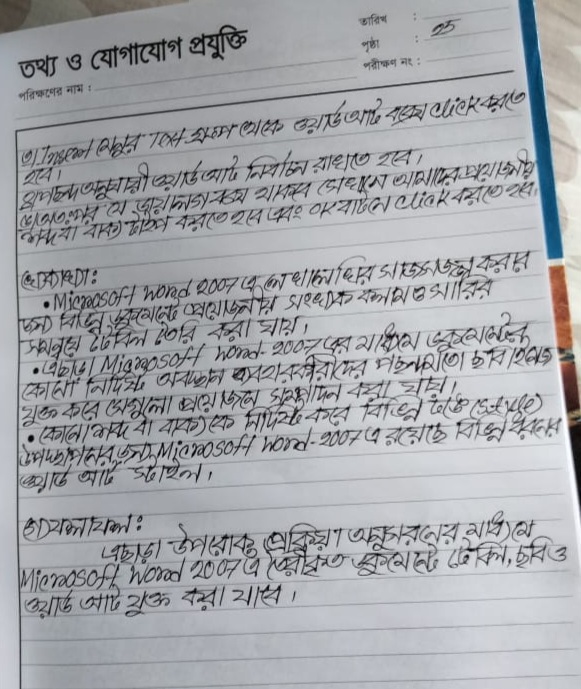 তথ্য ও যোগাযোগ প্রযুক্তি
পরিক্ষণের নাম :
তারিখ :
পৃষ্ঠা : 25
পরীক্ষণ নং :
৩। Insert মেনুর Text গ্রুপ থেকে ওয়ার্ড আর্ট বক্সে click করতে
হবে।
পছন্দ অনুযায়ী ওয়ার্ড আর্ট নির্বাচন রাখতে হবে।
যে ডায়ালগ বক্স থাকবে সেখানে আমাদের প্রয়োজনীয়
শব্দ বা বাক্য টাইপ করতে হবে এবং OK বাটনে click করতে হবে।
• Microsoft Word 2007 এ লেখালেখির সাজসজ্জা করার
জন্য বিভিন্ন ডকুমেন্টে প্রয়োজনীয় সংখ্যক কলাম ও সারির
সমন্বয়ে টেবিল তৈরি করা যায়।
• এছাড়া Microsoft Word-2007 এর মাধ্যমে ডকুমেন্টের
কোনো নির্দিষ্ট অবস্থানে ব্যবহারকারীদের পছন্দমতো ছবি ইমেজ
যুক্ত করে সেগুলো প্রয়োজনে সম্পাদন করা যায়।
• কোনো শব্দ বা বাক্যকে নির্দিষ্ট করে বিভিন্ন ঢঙে (Style)
উপস্থাপনের জন্য Microsoft Word-2007 এ রয়েছে বিভিন্ন ধরনের
ওয়ার্ড আর্ট স্টাইল।
ফলাফল:
এছাড়া উপরোক্ত প্রক্রিয়া অনুসরনের মাধ্যমে
Microsoft Word 2007 এ তৈরীকৃত ডকুমেন্টে টেবিল, ছবি ও
ওয়ার্ড আর্ট যুক্ত করা যাবে।